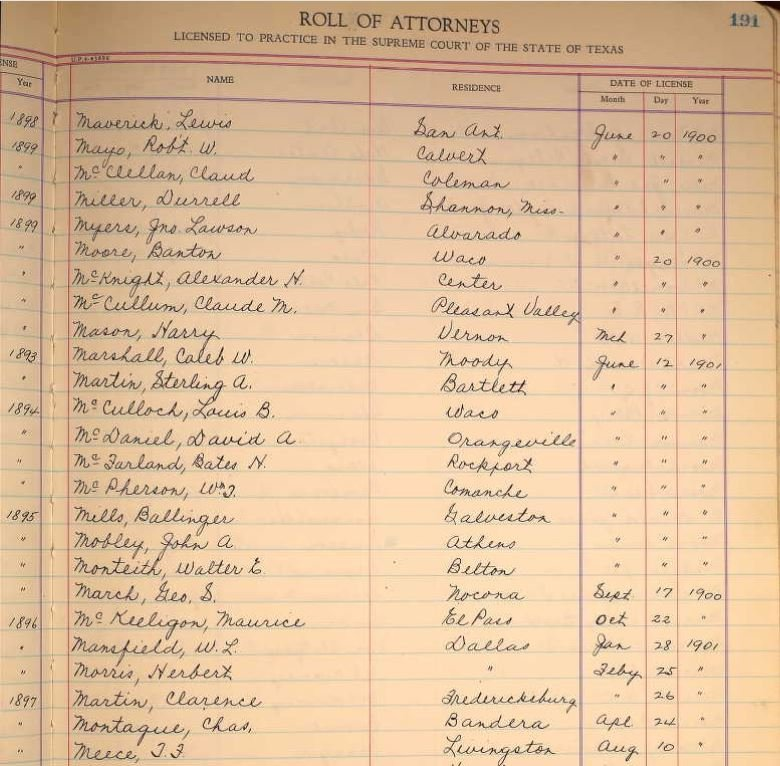 191
ROLL OF ATTORNEYS
LICENSED TO PRACTICE IN THE SUPREME COURT OF THE STATE OF TEXAS
ENSE NAME RESIDENCE DATE OF LICENSE
Year Month Day Year
1898 Maverick, Lewis San Ant. June 20 1900
1899 Mayo, Robt. W. Calvert " " "
" McClellan, Claud Coleman " " "
1899 Miller, Durrell Shannon, Miss. " " "
1899 Myers, Jno. Lawson Alvarado " " "
" Moore, Banton Waco 20 1900
" McKnight, Alexander H. Center " " "
" McCullum, Claude M. Pleasant Valley " " "
" Mason, Harry Vernon Mch 27 "
1893 Marshall, Caleb W. Moody June 12 1901
" Martin, Sterling A. Bartlett " " "
1894 McCulloch, Louis B. Waco " " "
" McDaniel, David A Orangeville " " "
" McFarland, Bates H. Rockport " " "
" McPherson, Wm J. Comanche " " "
1895 Mills, Ballinger Galveston " " "
" Mobley, John A. Athens " " "
" Monteith, Walter E. Belton " " "
" March, Geo. S. Nocona Sept. 17 1900
1896 McKeeligon, Maurice El Paso Oct 22 "
" Mansfield, W. L. Dallas Jan 28 1901
" Morris, Herbert " Feby 25 "
1897 Martin, Clarence Fredericksburg " 26 "
" Montague, Chas. Bandera Apl. 24 "
" Meece, T. F. Livingston Aug 10 "